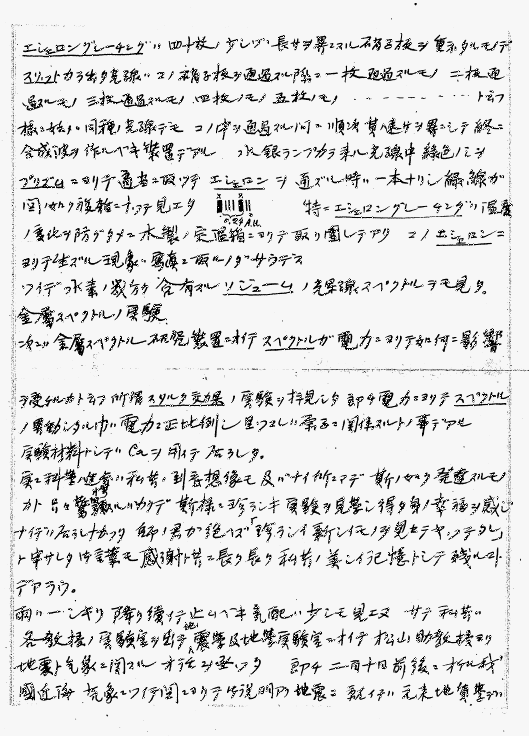 エシェロングレーチングハ四十枚ノ少シヅヽ長サヲ異ニスル硝子板ヲ重ネタルモノデ
スリットカラ出タ光線ハコノ硝子板ヲ通過スル際ニ一枚通過スルモノ二枚通
過スルモノ三枚通過スルモノ四枚ノモノ五枚ノモノ‥‥‥‥‥‥トナル
様ニ始メ同種ノ光線デモコノ中ヲ通過スル間ニ順次 ヲ異ニシテ終ニ
合成波ヲ作ルベキ装置デアル 水銀ランプカラ来ル光線中緑色ノミヲ
プリズムニヨリテ適当ニ取ッテエシェロンヲ通ズル時ハ一本ナリシ緑線ガ
図ノ如ク複雑ニナッテ見エタ 特ニエシェロングレーチングハ温度
ノ変化ヲ防グタメニ木製ノ定温箱ニヨリテ取リ囲レテアリ コノエシェロンニ
ヨリテ生ズル現象ハ写真ニ取ルノダサウデス
ツイデ水素ノ ヲ含有スル ノ光線スペクトルヲモ見タ。
金属スペクトルノ実験
次ニハ金属スペクトル研究装置ニオイテスペクトルガ電力ニヨリテ如何ニ影響
ヲ受ケルカトイフ所謂スタルク効果ノ実験ヲ拝見シタ 即チ電力ニヨリテスペクトル
ノ異動シタル巾ハ電力ニ正比例シ ソレハ原子ニ関係スルトノ事デアル
実験材料トシテCaヲ用ヰテ居ラレタ。
実ニ科学ノ進歩ハ私共ノ到底想像モ及バナイ所ニマデ斯ノ如ク発達スルモノ
カト只々驚嘆スルバカリデ斯様ニ珍ラシキ実験ヲ見学シ得タ身ノ幸福ヲ感ジ
ナイデハ居ラレナカッタ 師ノ君ガ絶ヘズ「珍ラシイ新シイモノヲ見セテヤッテクレ」
ト申サレタ御言葉モ感謝ト共ニ長ク長ク私共ノ美シイ記憶トシテ残ルコト
デアラウ。
雨ハ一シキリ降リ後イテ止ムベキ気配ハ少シモ見エヌ サテ私共ハ
各教授ノ実験室ヲ出デ地震学及地学実験室ニオイテ松山助教授ヨリ
地震ト気象ニ関スルオ話ヲ承ッタ 即チ二百十日前後ニ於ケル我
國近海ノ気象ニツイテ図ニヨリテ御説明アリ地震ニ就イテハ元来地質学ノ